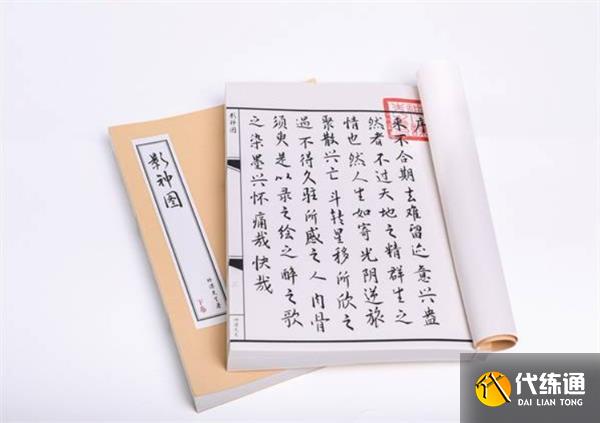 序
来不合期去难留迹意兴盎
然者不过天地之精群生之
情也然人生如寄光阴逆旅
聚散兴亡斗转星移所欣之
遇不待久驻所感之人肉骨
须臾是以录之绘之醉之歌
之染墨兴怀痛哉快哉
影神图
影神图
下卷
代练通
DAI LIAN TONG